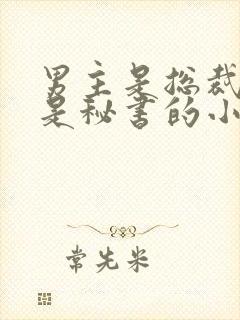 男主是总裁
是秘书的小
常先米